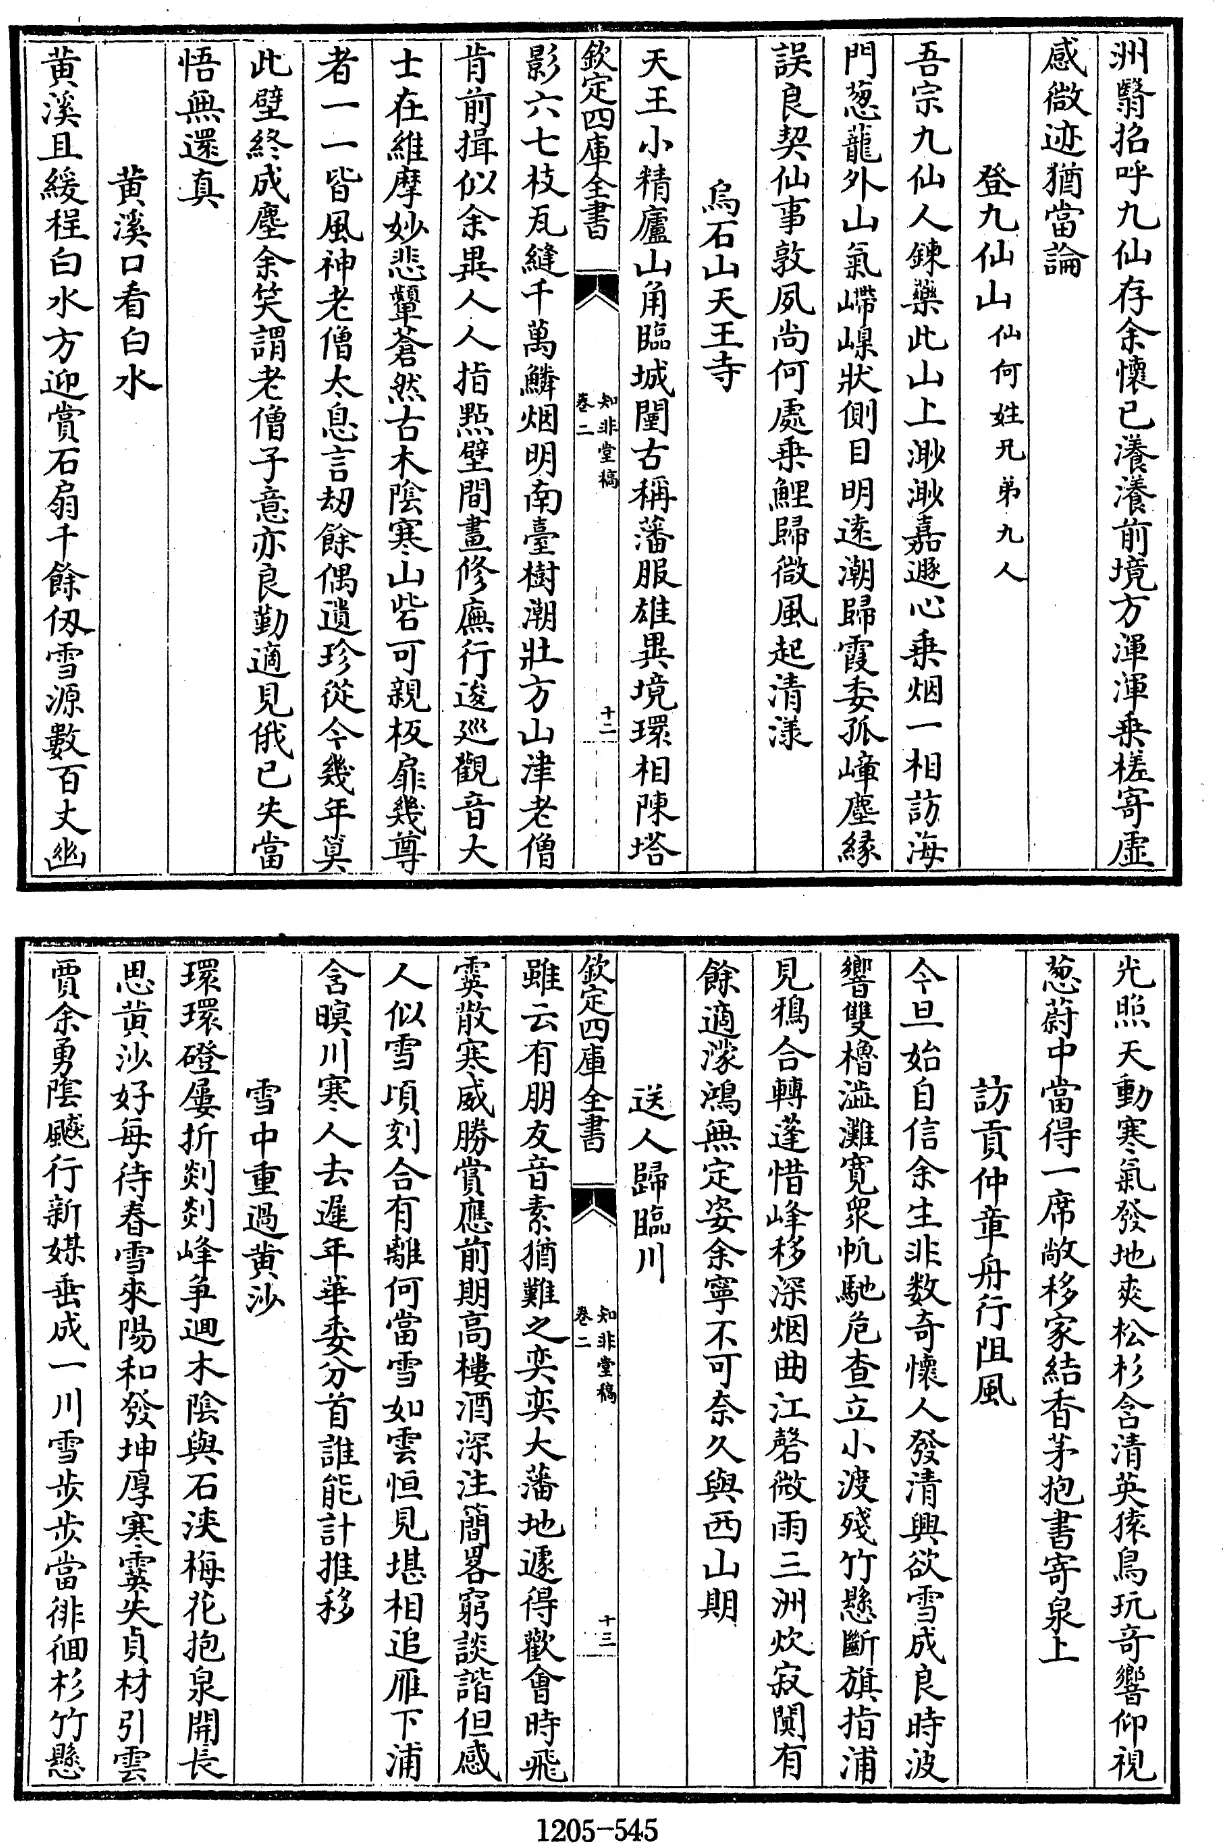 洲翳招呼九仙存余懷已瀁瀁前境方渾渾乗槎寄虚
感微迹猶當論
登九仙山仙何姓兄弟九人
吾宗九仙人鍊藥此山上渺渺嘉遯心乗烟一相訪海
門葱蘢外山氣嵽嵲狀側目明逺潮歸霞委孤嶂塵縁
誤良契仙事敦夙尚何處乗鯉歸微風起清漾
烏石山天王寺
天王小精廬山角臨城闉古稱藩服雄異境環相陳塔
欽定四庫全書
知非堂稿
卷二
十二
影六七枝瓦縫千萬鱗烟明南臺樹潮壯方山津老僧
肯前揖似余異人人指點壁間畫修廡行逡廵觀音大
士在維摩妙悲顰蒼然古木陰寒山呰可親板扉幾尊
者一一皆風神老僧太息言刼餘偶遺珍從今幾年莫
此壁終成塵余笑謂老僧子意亦良勤適見俄已失當
悟無還真
黄溪口看白水
黄溪且緩程白水方迎賞石扇千餘仭雪源數百丈幽
光照天動寒氣發地爽松杉含清英猿鳥玩竒響仰視
葱蔚中當得一席敞移家結香茅抱書寄泉上
訪貢仲章舟行阻風
今旦始自信余生非数竒懐人發清興欲雪成良時波
響雙櫓澁灘寛衆帆馳危查立小渡殘竹懸斷旗指浦
見鴉合轉蓬惜峰移深烟曲江磬微雨三洲炊寂闃有
餘適濛鴻無定姿余寧不可奈久與西山期
送人歸臨川
欽定四庫全書
知非堂稿
卷二
十三
雖云有朋友音素猶難之奕奕大藩地遽得歡會時飛
霙散寒威勝賞應前期高樓酒深注簡畧窮談諧但感
人似雪頃刻合有離何當雪如雲恒見堪相追雁下浦
含暝川寒人去遲年華委分首誰能計推移
雪中重過黄沙
環環磴屢折剡剡峰争迴木陰與石浹梅花抱泉開長
思黄沙好每待春雪來陽和發坤厚寒霙失貞材引雲
賈余勇陰飈行新媒垂成一川雪步步當徘徊杉竹懸
1205-545